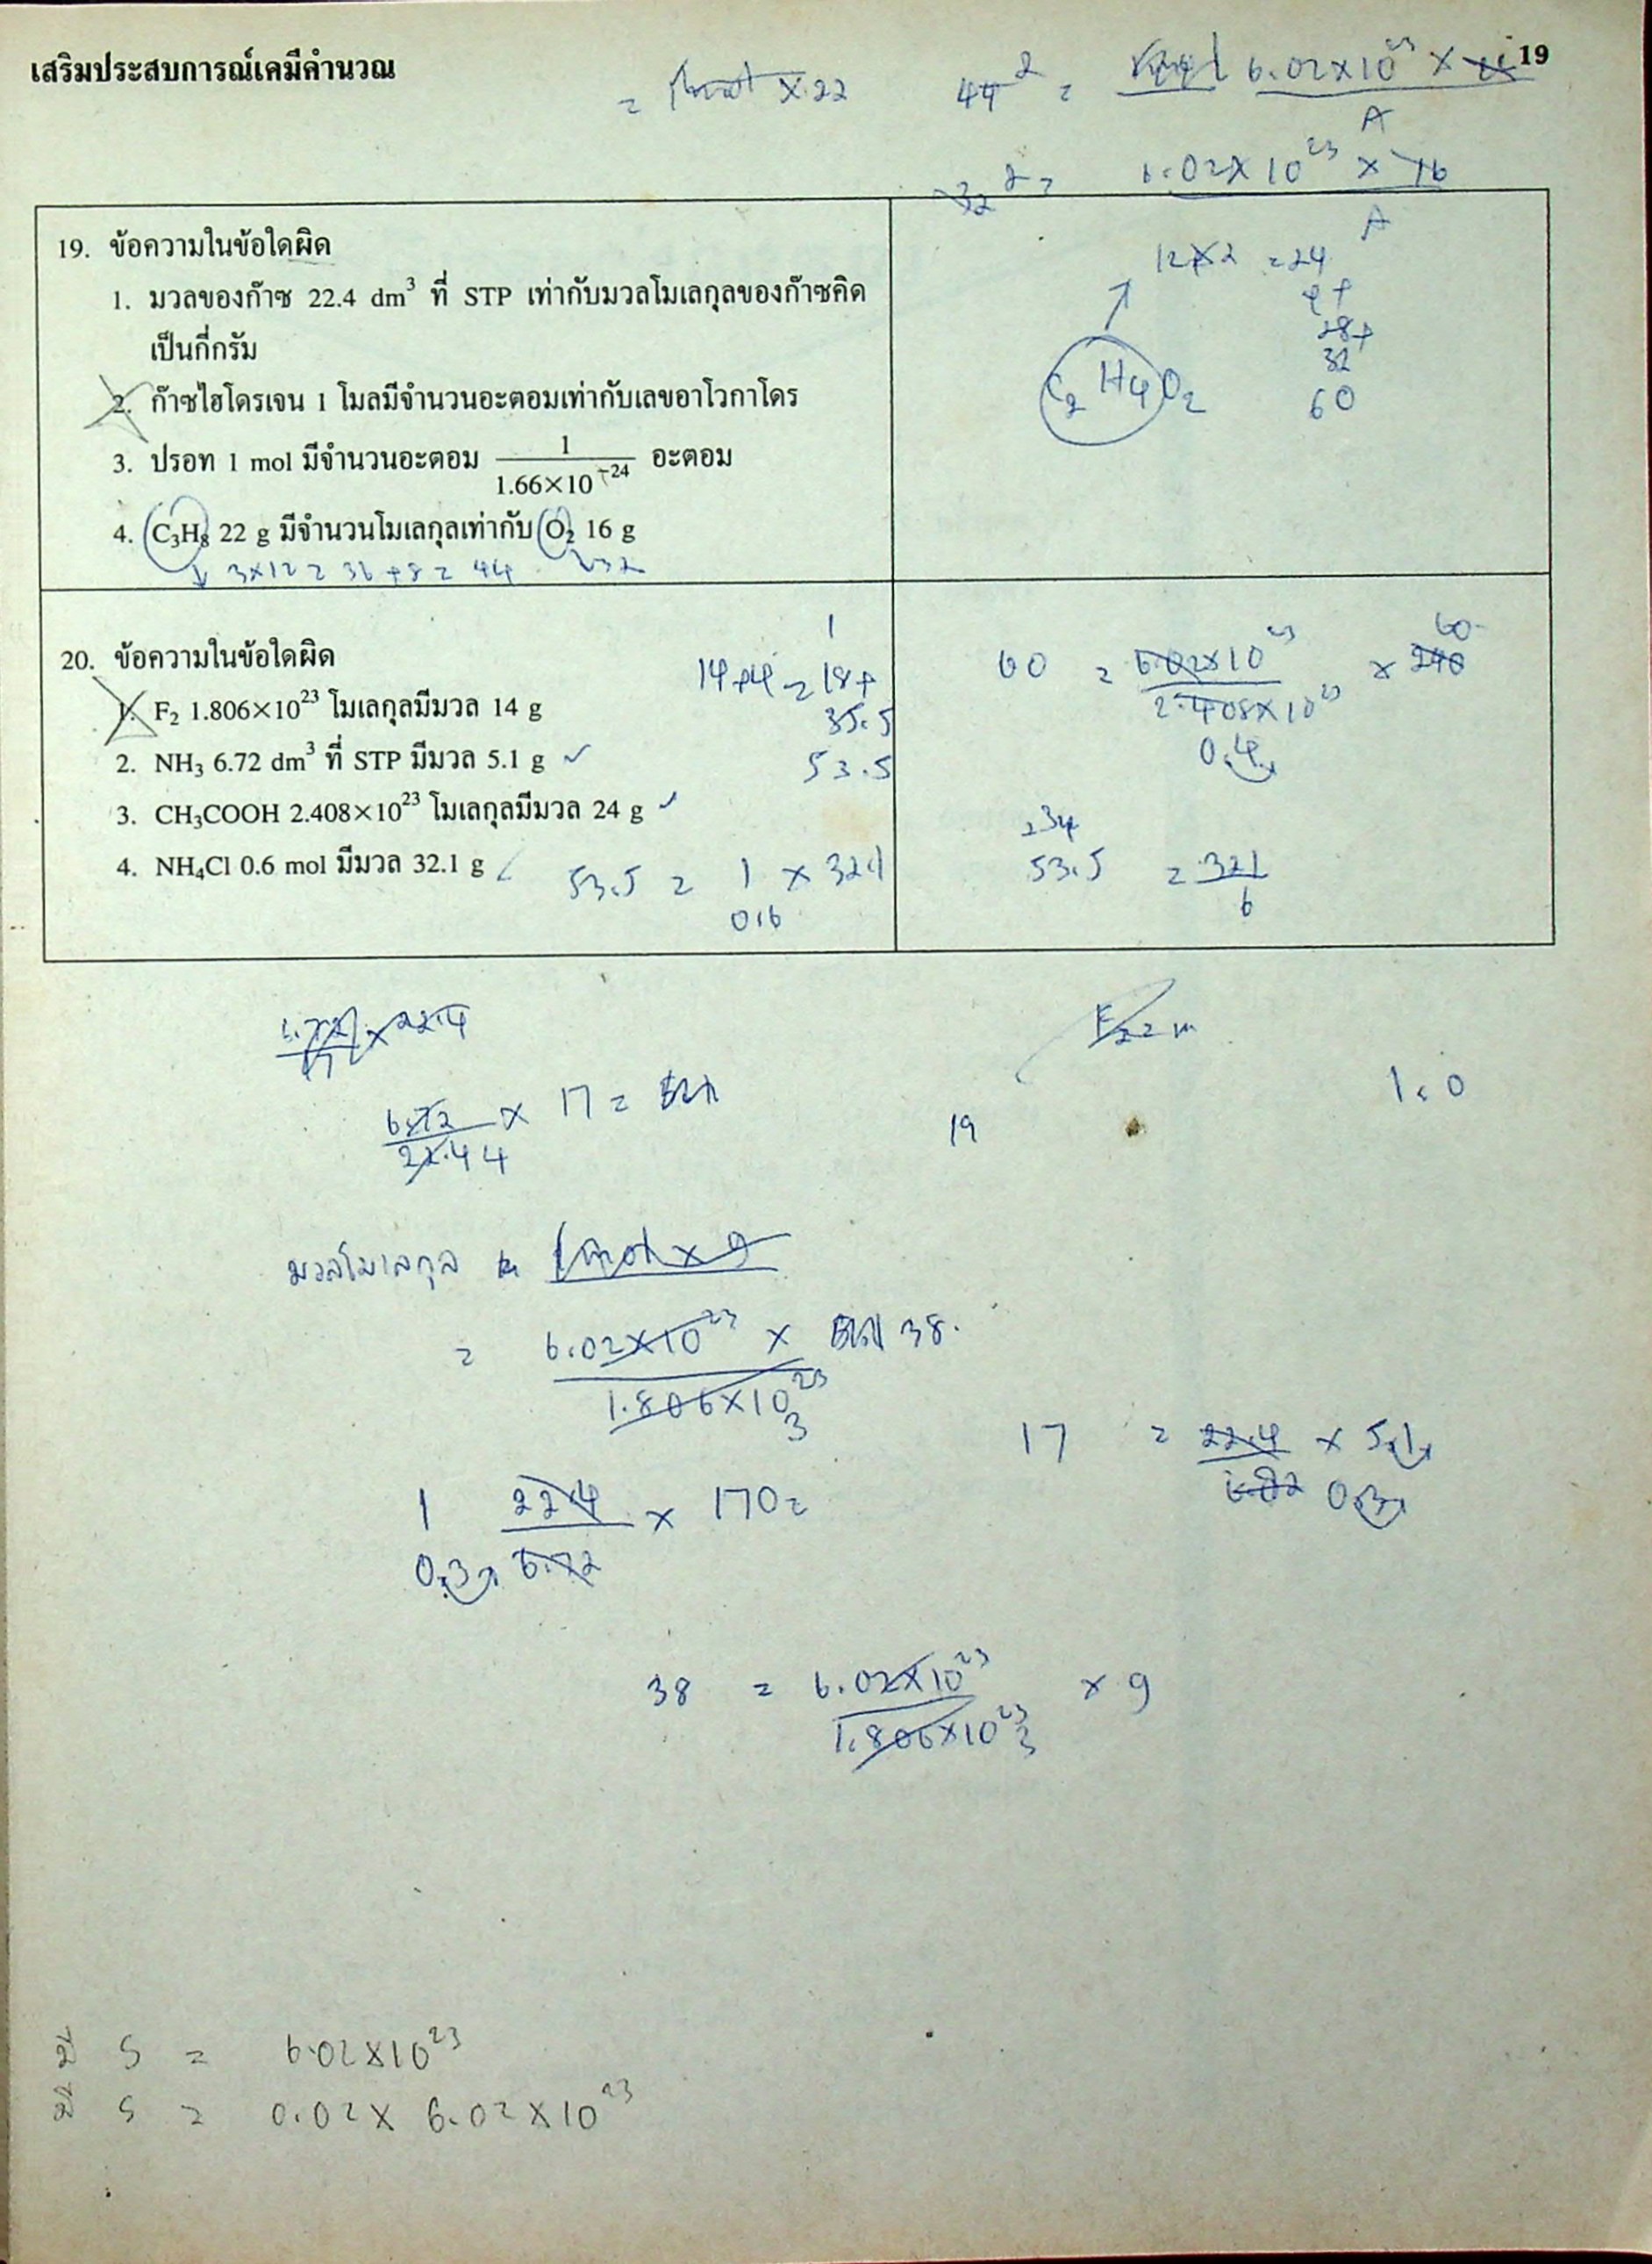 เสริมประสบการณ์เคมีคำนวณ
19
= × 22
44 2 = 6.02×10²³ ×
A
32 2 = 6.02×10²³ × 16
A
19. ข้อความในข้อใดผิด
1. มวลของก๊าซ 22.4 dm³ ที่ STP เท่ากับมวลโมเลกุลของก๊าซคิด
เป็นกี่กรัม
2. ก๊าซไฮโดรเจน 1 โมลมีจำนวนอะตอมเท่ากับเลขอาโวกาโดร
3. ปรอท 1 mol มีจำนวนอะตอม 1/1.66×10⁻²⁴ อะตอม
4. C₃H₈ 22 g มีจำนวนโมเลกุลเท่ากับ O₂ 16 g
3×12 = 36 + 8 = 44 32
12×2 = 24
4 +
28 +
32
60
C₂H₄O₂
20. ข้อความในข้อใดผิด
1. F₂ 1.806×10²³ โมเลกุลมีมวล 14 g
2. NH₃ 6.72 dm³ ที่ STP มีมวล 5.1 g ✓
3. CH₃COOH 2.408×10²³ โมเลกุลมีมวล 24 g ✓
4. NH₄Cl 0.6 mol มีมวล 32.1 g
1
14+4 = 18+
35.5
53.5
53.5 = 1 × 32.1
0.6
60 = 6.02×10²³ × 60
2.408×10²³
0.4
234
53.5 = 321
6
× 22.4
17
6.72 × 17 =
22.4 4
F₂ =
19
1.0
มวลโมเลกุล 1 mol × g
= 6.02×10²³ × 38
1.806×10²³
3
17 = 22.4 × 5.1
0.3
1 22.4 × 170 =
0.3 6.72
38 = 6.02×10²³ × g
1.806×10²³
3
มี S = 6.02×10²³
มี S = 0.02× 6.02×10²³